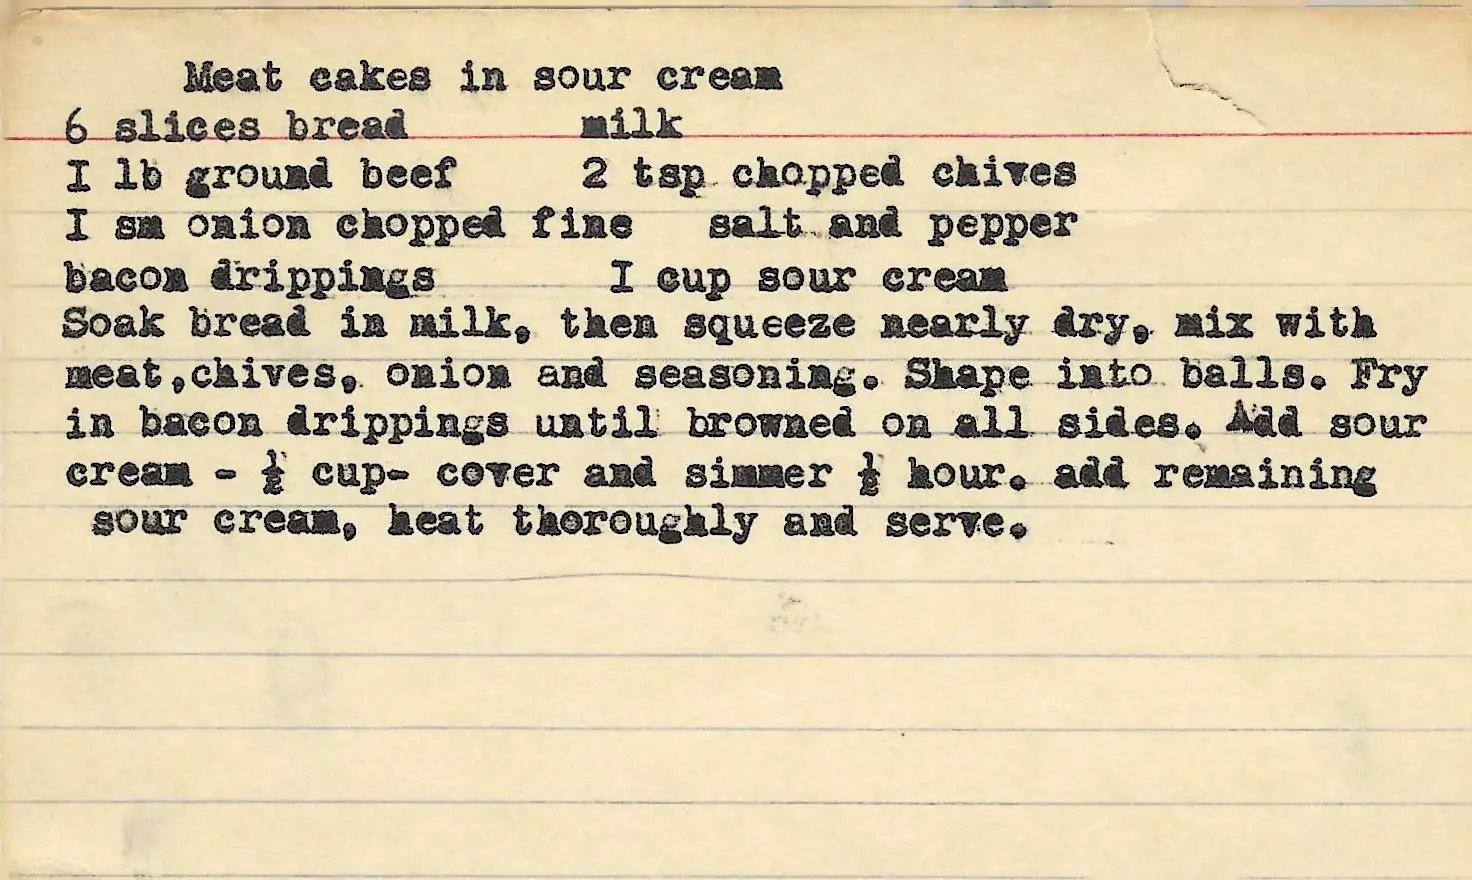 Meat cakes in sour cream
6 slices bread milk
I lb ground beef 2 tsp chopped chives
I sm onion chopped fine salt and pepper
bacon drippings I cup sour cream
Soak bread in milk, then squeeze nearly dry, mix with
meat,chives, onion and seasoning. Shape into balls. Fry
in bacon drippings until browned on all sides. Add sour
cream - ½ cup- cover and simmer ½ hour. add remaining
sour cream, heat thoroughly and serve.